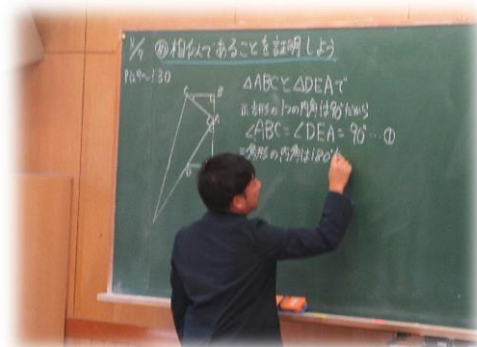 1/9 め 相似であることを証明しよう
P129~130
△ABCと△DEAで
正方形の1つの内角は90°だから
∠ABC=∠DEA=90°…①
三角形の内角は180°